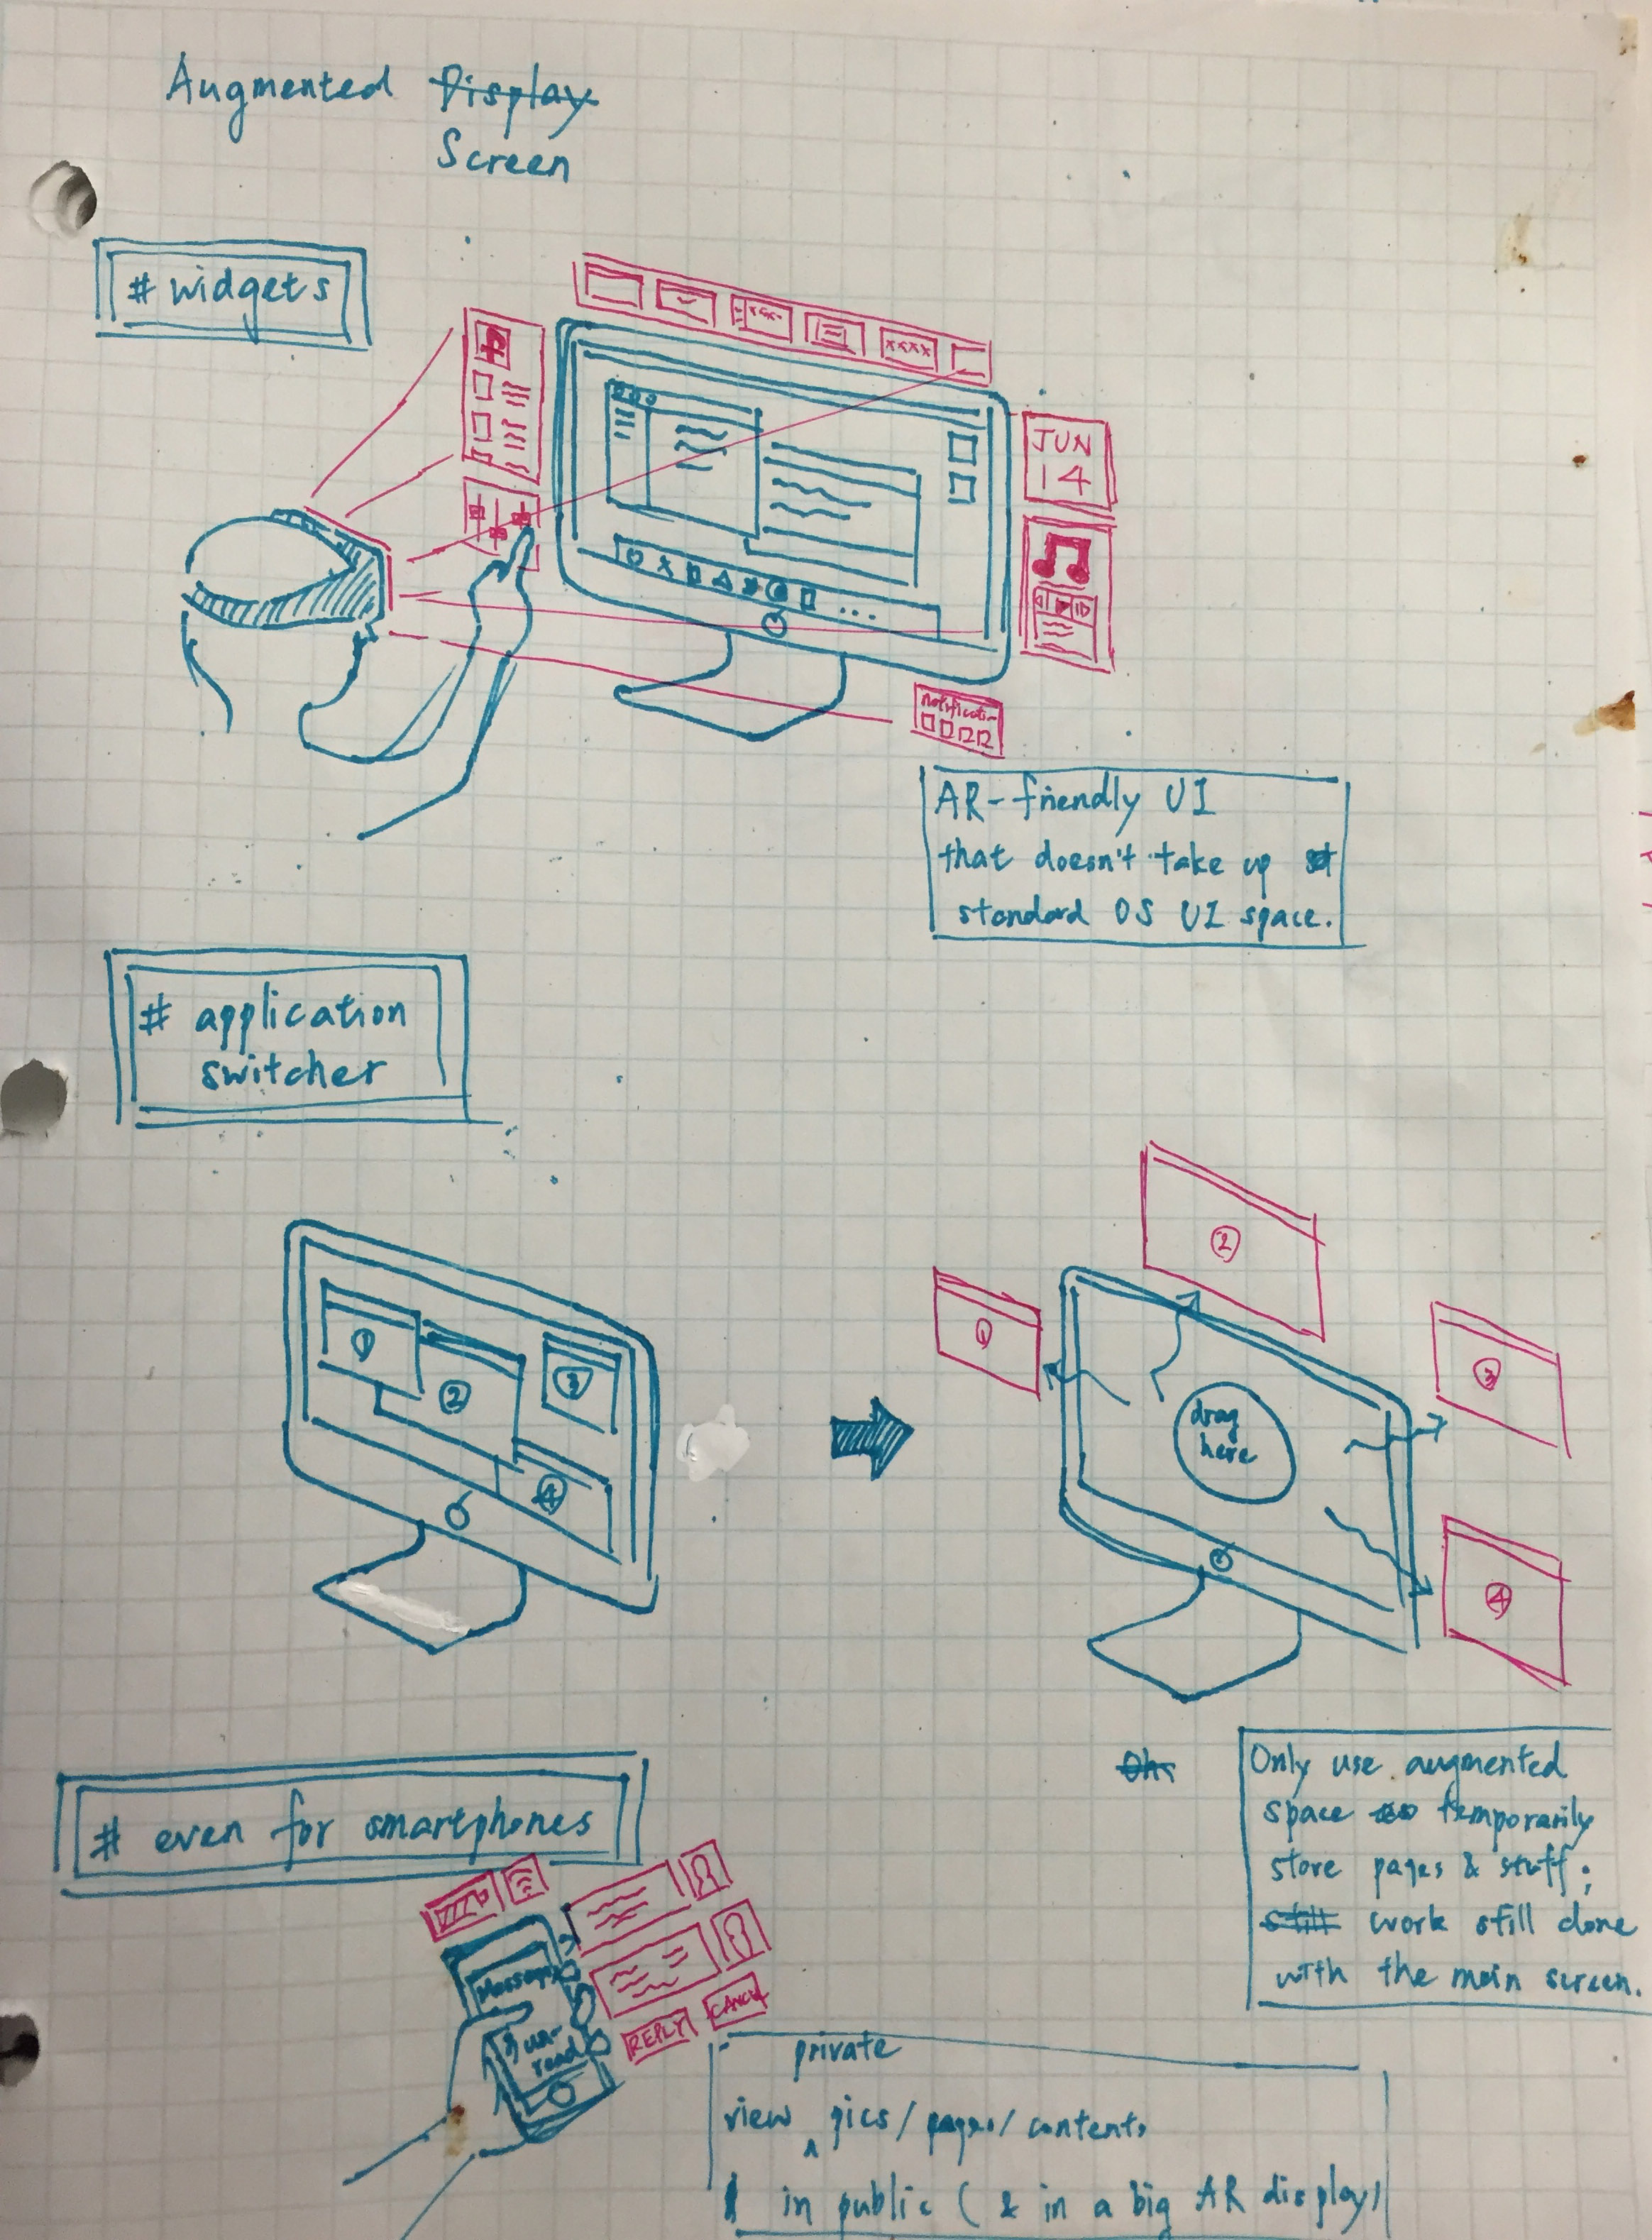 Augmented Display
Screen
# widgets
JUN
14
notification
AR-friendly UI
that doesn't take up
standard OS UI space.
# application
switcher
1
2
3
4
1
2
3
4
drag
here
Only use augmented
space temporarily
store pages & stuff;
still work still done
with the main screen.
# even for smartphones
Message
un-
read
REPLY
CANCEL
private
view ^ pics/pages/contents
in public (& in a big AR display)